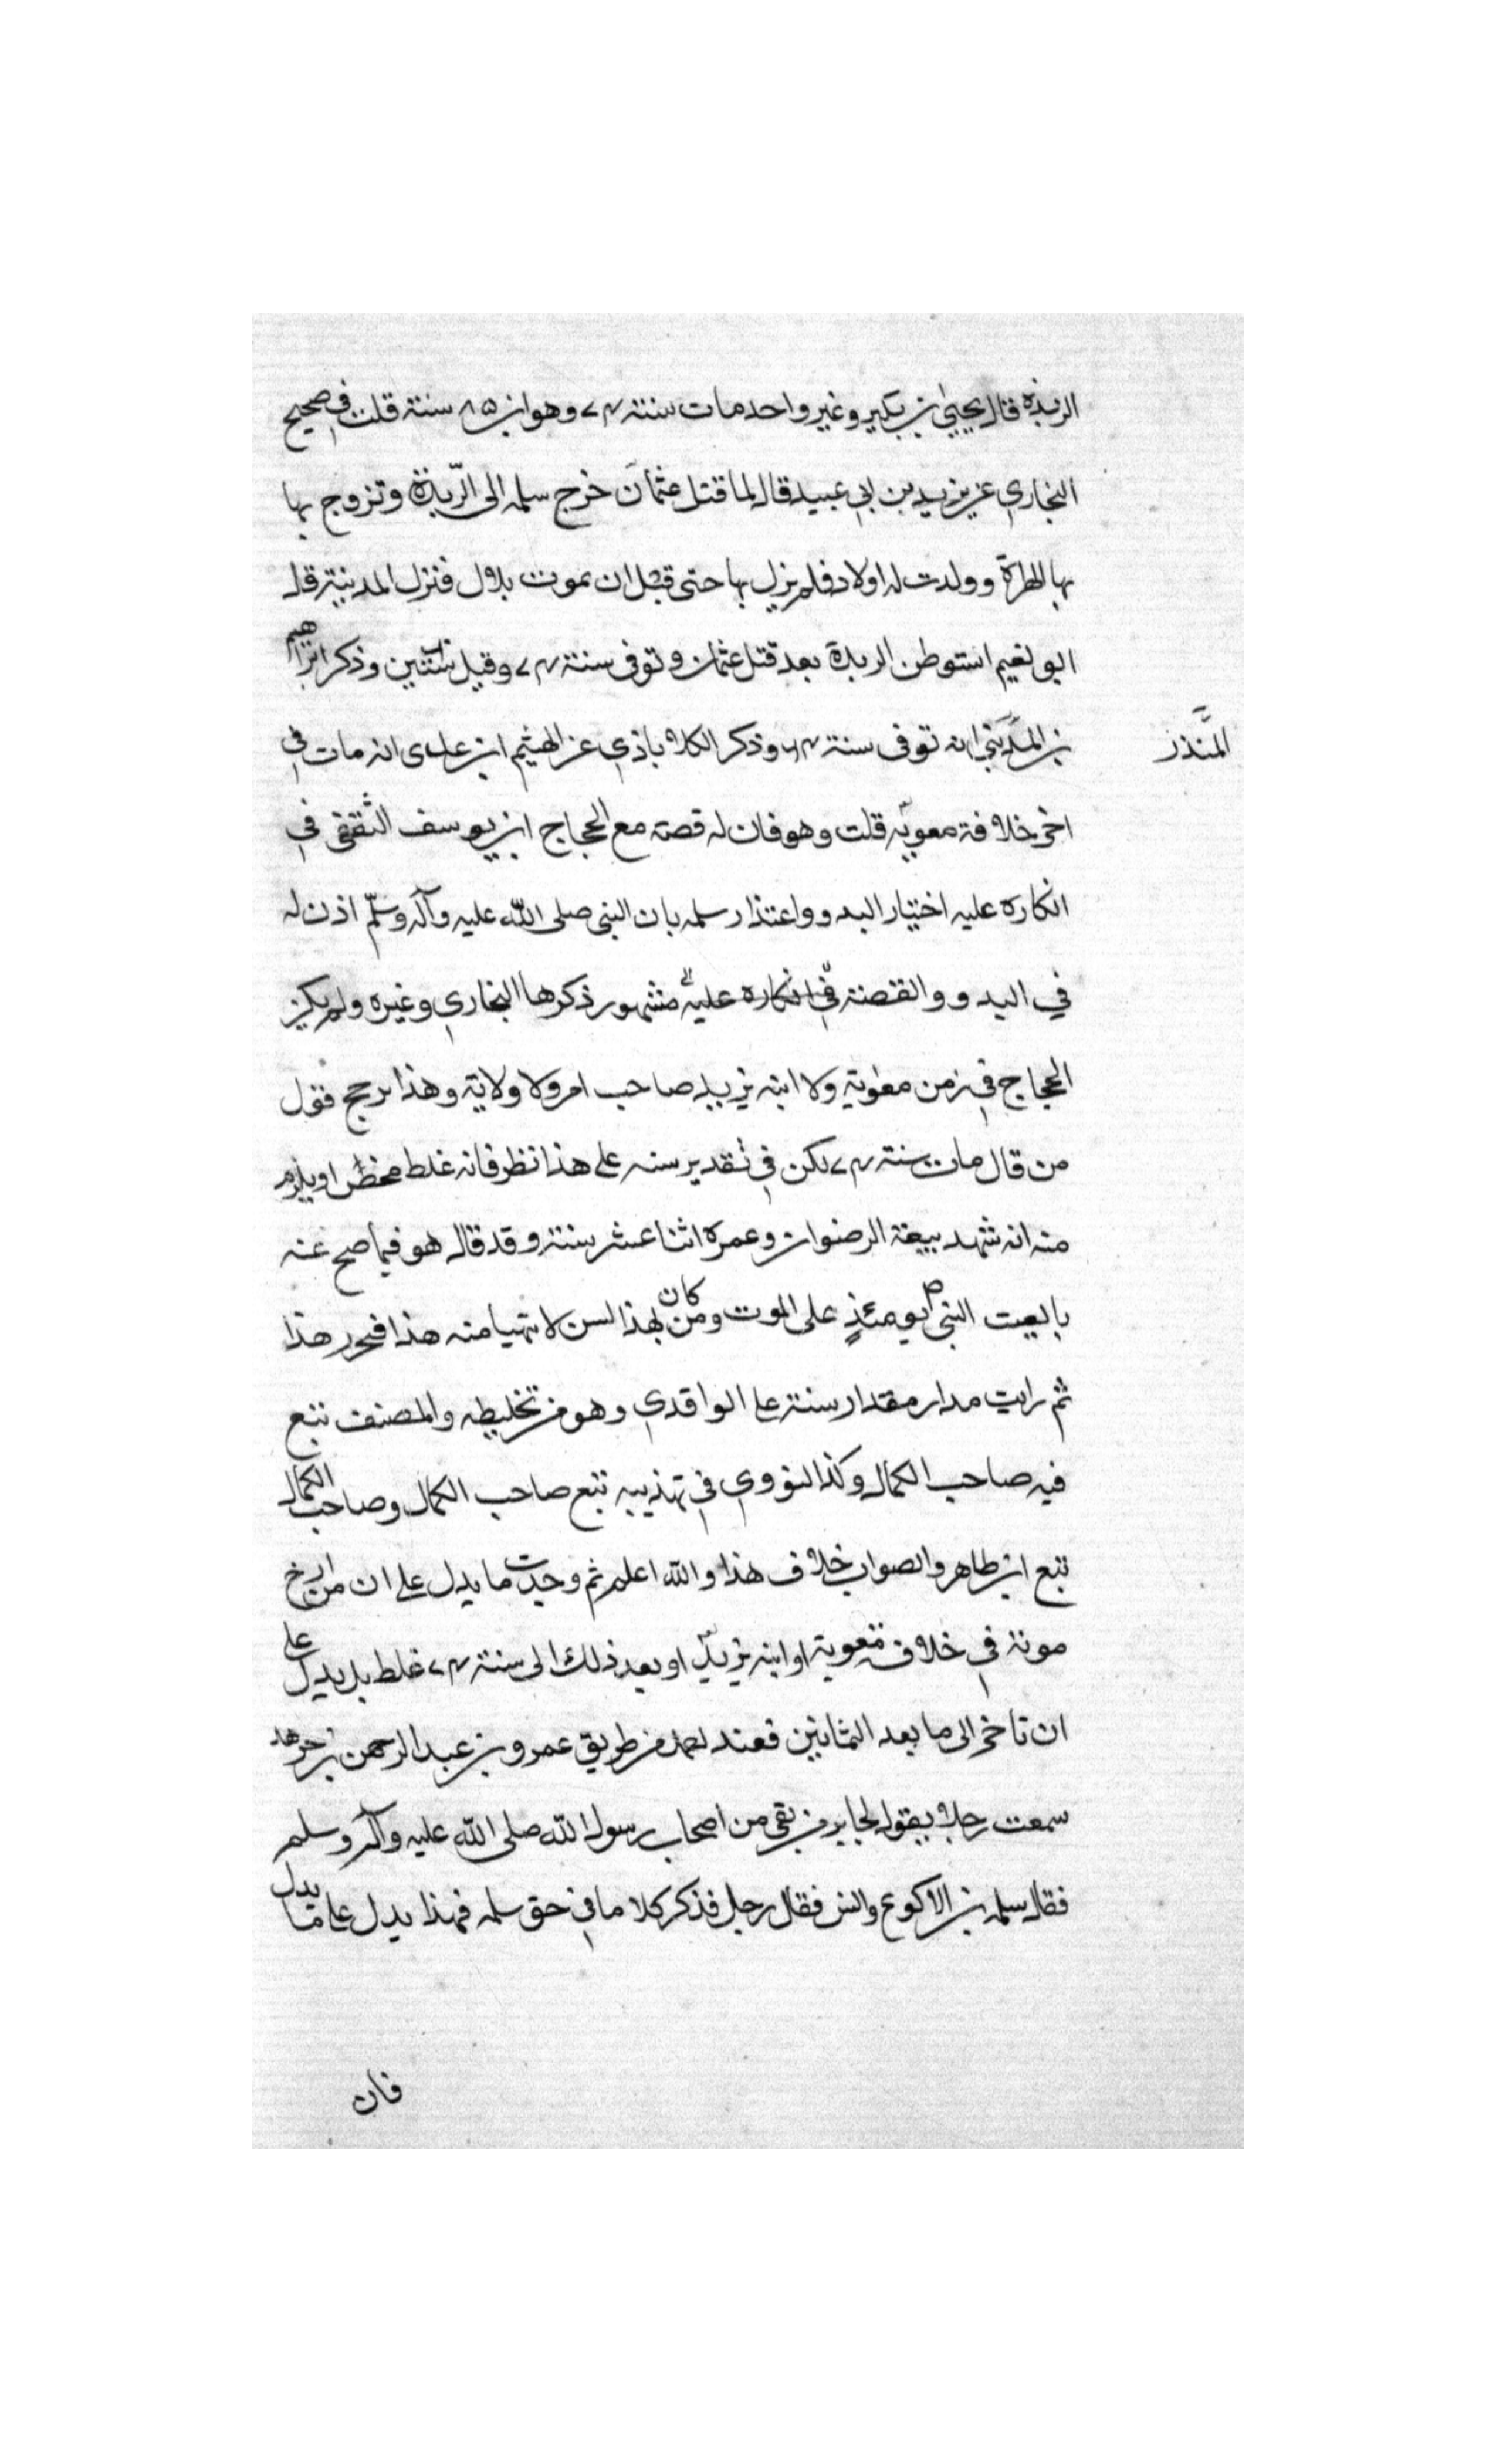 الربذة قال يحيى ابن بكير وغير واحد مات سنة ٧٤ وهو ابن ٨٥ سنة قلت في صحيح
البخاري عن يزيد بن ابي عبيد قال لما قتل عثمان خرج سلمه الى الرّبذة وتزوج بها
بها امراة وولدت له اولاد فلم يزل بها حتى قبل ان يموت بلال فنزل المدينة قال
ابو نعيم استوطن الربذة بعد قتل عثمان وتوفى سنة ٧٤ وقيل ستين وذكر ابراهيم
بن المدينى انه توفى سنة ٦٤ وذكر الكلاباذي عن الهيثم ابن عدى انه مات في
المنذر
اخر خلافة معوية قلت وهو فان له قصة مع الحجاج ابن يوسف الثقفى في
انكاره عليه اختيار البدو واعتذار سلمه بان النبى صلى الله عليه وآله وسلّم اذن له
في البدو والقصة في انكاره عليه مشهور ذكرها البخاري وغيره ولم يكن
الحجاج في زمن معوية ولا ابنه يزيد صاحب امر ولا ولاية وهذا يرجح قول
من قال مات سنة ٧٤ لكن في تقدير سنه على هذا نظر فانه غلط محض او يلزم
منه انه شهد بيعة الرضوان وعمره اثنا عشر سنة وقد قال هو فيما صح عنه
بايعت النبى ص يومئذٍ على الموت ومن كان بهذا السن لا يتهيأ منه هذا فيحرر هذا
ثم رايت مدار مقدار سنة على الواقدي وهو من تخليطه والمصنف تبع
فيه صاحب الكمال وكذا النووي في تهذيبه تبع صاحب الكمال وصاحب الكمال
تبع ابن طاهر والصواب خلاف هذا والله اعلم ثم وجدت ما يدل على ان من ارخ
موته في خلافة معوية او ابنه يزيد او بعد ذلك الى سنة ٧٤ غلط بل يدل على
ان تاخر الى ما بعد الثمانين فعند احمد من طريق عمرو بن عبد الرحمن بن جرهد
سمعت رجلا يقول لجابر من بقى من اصحاب رسول الله صلى الله عليه وآله وسلم
فقال سلمه بن الاكوع وانس فقال رجل فذكر كلاما في حق سلمه فهذا يدل على ما يدل
فان